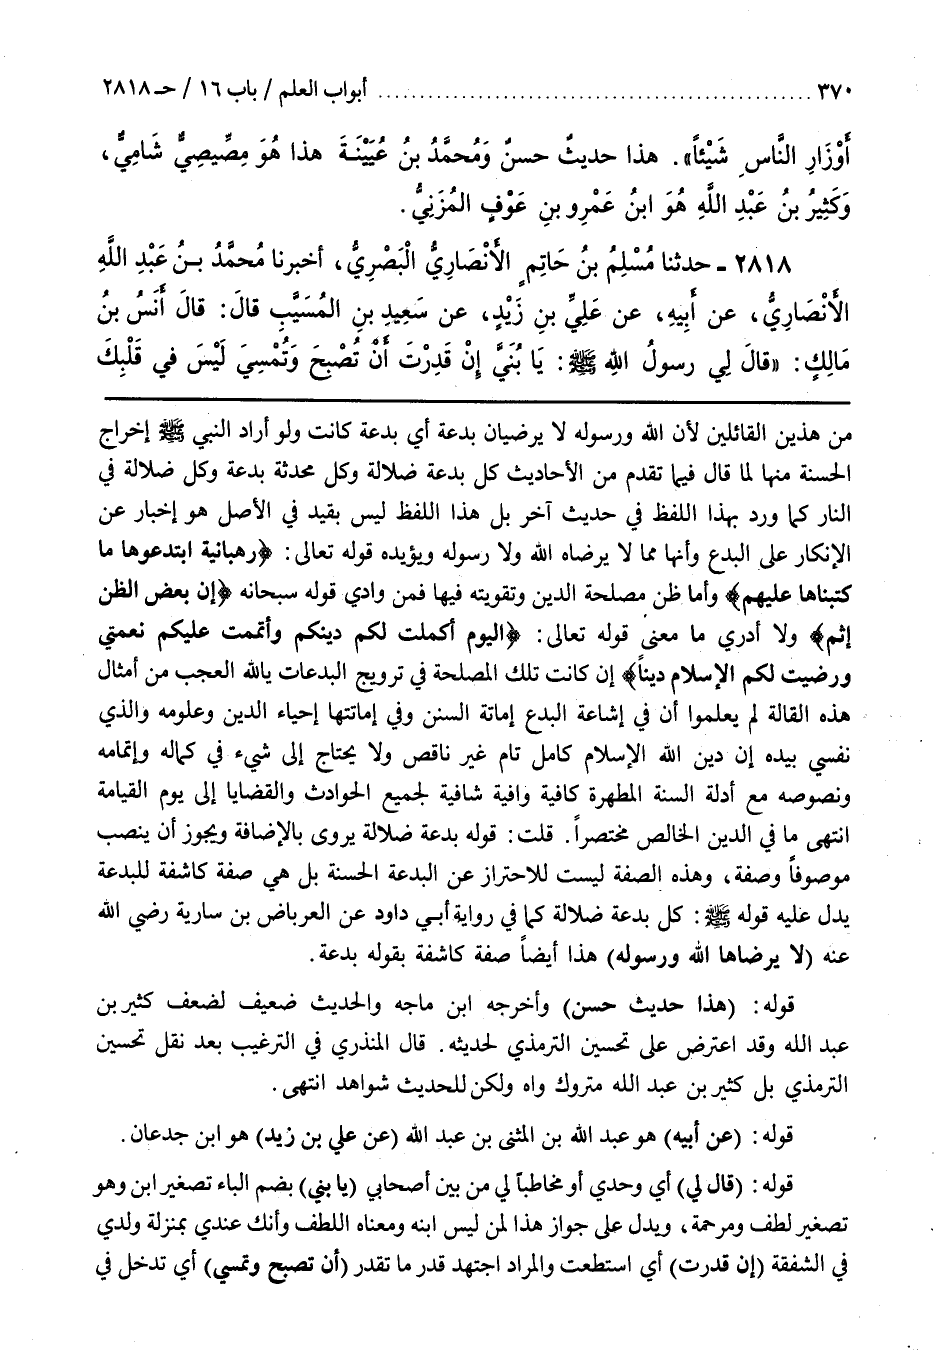 ٣٧٠ ................................................ أبواب العلم / باب ١٦ / حـ ٢٨١٨
أَوْزَارِ النَّاسِ شَيْئاً». هذا حديثٌ حسنٌ وَمُحمَّدُ بنُ عُيَيْنَـةَ هذا هُوَ مِصِّيصِيٌّ شَامِيٌّ،
وَكَثِيرُ بنُ عَبْدِ اللَّهِ هُوَ ابنُ عَمْرِو بنِ عَوْفٍ المُزَنِيُّ.
٢٨١٨ ـ حدثنا مُسْلِمُ بنُ حَاتِمٍ الأَنْصَارِيُّ الْبَصْرِيُّ، أخبرنا مُحمَّدُ بـنُ عَبْدِ اللَّهِ
الأَنْصَارِيُّ، عن أَبِيهِ، عن عَلِيِّ بنِ زَيْدٍ، عن سَعِيدِ بنِ المُسَيَّبِ قالَ: قالَ أَنَسُ بنُ
مَالِكٍ: «قالَ لِي رسولُ اللهِ ﷺ: يَا بُنَيَّ إِنْ قَدِرْتَ أَنْ تُصْبِحَ وَتُمْسِيَ لَيْسَ في قَلْبِكَ
من هذين القائلين لأن الله ورسوله لا يرضيان بدعة أي بدعة كانت ولو أراد النبي ﷺ إخراج
الحسنة منها لما قال فيما تقدم من الأحاديث كل بدعة ضلالة وكل محدثة بدعة وكل ضلالة في
النار كما ورد بهذا اللفظ في حديث آخر بل هذا اللفظ ليس بقيد في الأصل هو إخبار عن
الإنكار على البدع وأنها مما لا يرضاه الله ولا رسوله ويؤيده قوله تعالى: ﴿رهبانية ابتدعوها ما
كتبناها عليهم﴾ وأما ظن مصلحة الدين وتقويته فيها فمن وادي قوله سبحانه ﴿إن بعض الظن
إثم﴾ ولا أدري ما معنى قوله تعالى: ﴿اليوم أكملت لكم دينكم وأتممت عليكم نعمتي
ورضيت لكم الإسلام ديناً﴾ إن كانت تلك المصلحة في ترويج البدعات يالله العجب من أمثال
هذه القالة لم يعلموا أن في إشاعة البدع إماتة السنن وفي إماتتها إحياء الدين وعلومه والذي
نفسي بيده إن دين الله الإسلام كامل تام غير ناقص ولا يحتاج إلى شيء في كماله وإتمامه
ونصوصه مع أدلة السنة المطهرة كافية وافية شافية لجميع الحوادث والقضايا إلى يوم القيامة
انتهى ما في الدين الخالص مختصراً. قلت: قوله بدعة ضلالة يروى بالإضافة ويجوز أن ينصب
موصوفاً وصفة، وهذه الصفة ليست للاحتراز عن البدعة الحسنة بل هي صفة كاشفة للبدعة
يدل عليه قوله ﷺ: كل بدعة ضلالة كما في رواية أبـي داود عن العرباض بن سارية رضي الله
عنه (لا يرضاها الله ورسوله) هذا أيضاً صفة كاشفة بقوله بدعة.
قوله: (هذا حديث حسن) وأخرجه ابن ماجه والحديث ضعيف لضعف كثير بن
عبد الله وقد اعترض على تحسين الترمذي لحديثه. قال المنذري في الترغيب بعد نقل تحسين
الترمذي بل كثير بن عبد الله متروك واه ولكن للحديث شواهد انتهى.
قوله: (عن أبيه) هو عبد الله بن المثنى بن عبد الله (عن علي بن زيد) هو ابن جدعان.
قوله: (قال لي) أي وحدي أو مخاطباً لي من بين أصحابي (يا بني) بضم الباء تصغير ابن وهو
تصغير لطف ومرحمة، ويدل على جواز هذا لمن ليس ابنه ومعناه اللطف وأنك عندي بمنزلة ولدي
في الشفقة (إن قدرت) أي استطعت والمراد اجتهد قدر ما تقدر (أن تصبح وتمسي) أي تدخل في